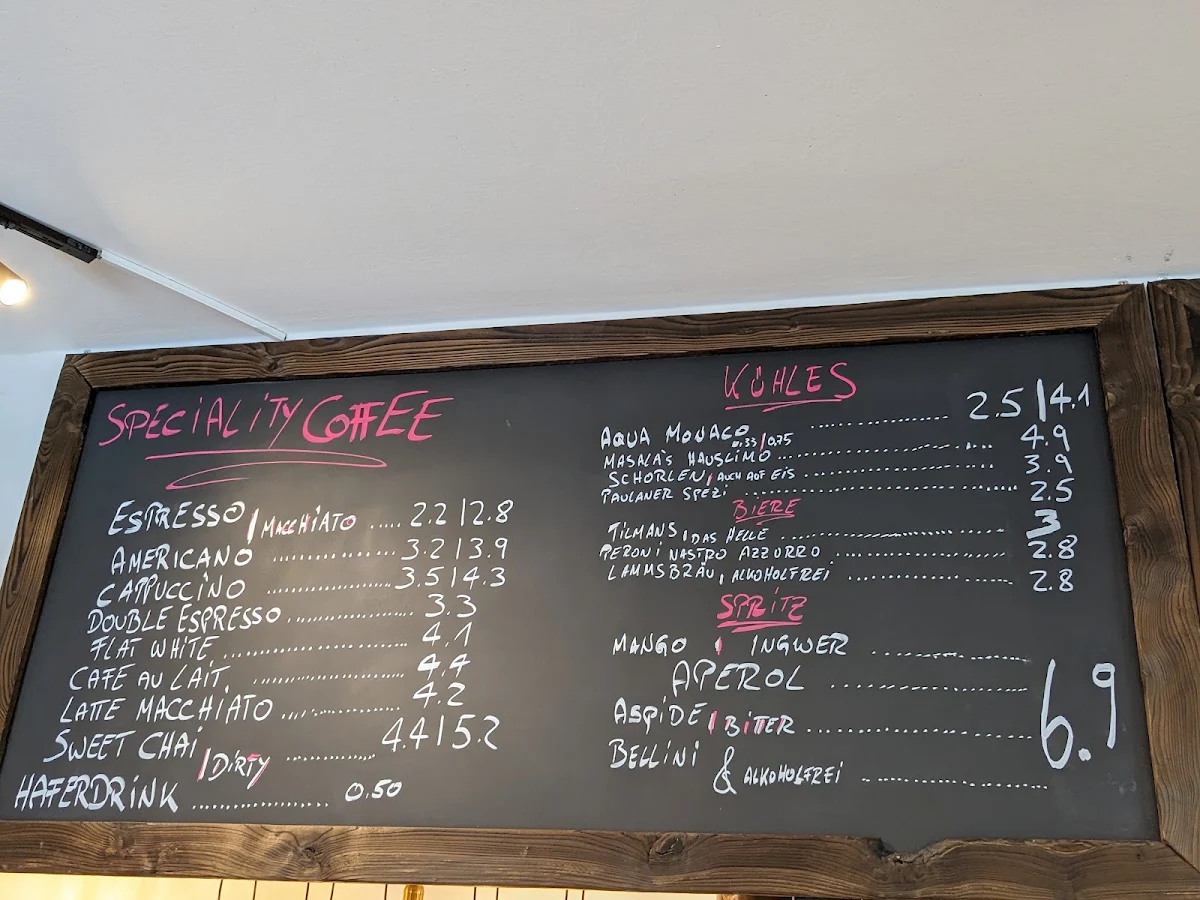 SPECIALITY COFFEE
ESPRESSO | MACCHIATO ..... 2.2 | 2.8
AMERICANO ............... 3.2 | 3.9
CAPPUCCINO ............... 3.5 | 4.3
DOUBLE ESPRESSO ............... 3.3
FLAT WHITE ............... 4.1
CAFE AU LAIT. ............... 4.4
LATTE MACCHIATO ............... 4.2
SWEET CHAI | DIRTY ............... 4.4 | 5.2
HAFERDRINK ............... 0.50
KÜHLES
AQUA MONACO 0.33 | 0.75 ............... 2.5 | 4.1
MASALA'S HAUSLIMO ............... 4.9
SCHORLEN | AUCH AUF EIS ............... 3.9
PAULANER SPEZI ............... 2.5
BIERE
TILMANS, DAS HELLE ............... 3
PERONI NASTRO AZZURRO ............... 2.8
LAMMSBRÄU, ALKOHOLFREI ............... 2.8
SPRITZ
MANGO | INGWER ...............
APEROL ............... 6.9
ASPIDE | BITTER ...............
BELLINI & ALKOHOLFREI ...............